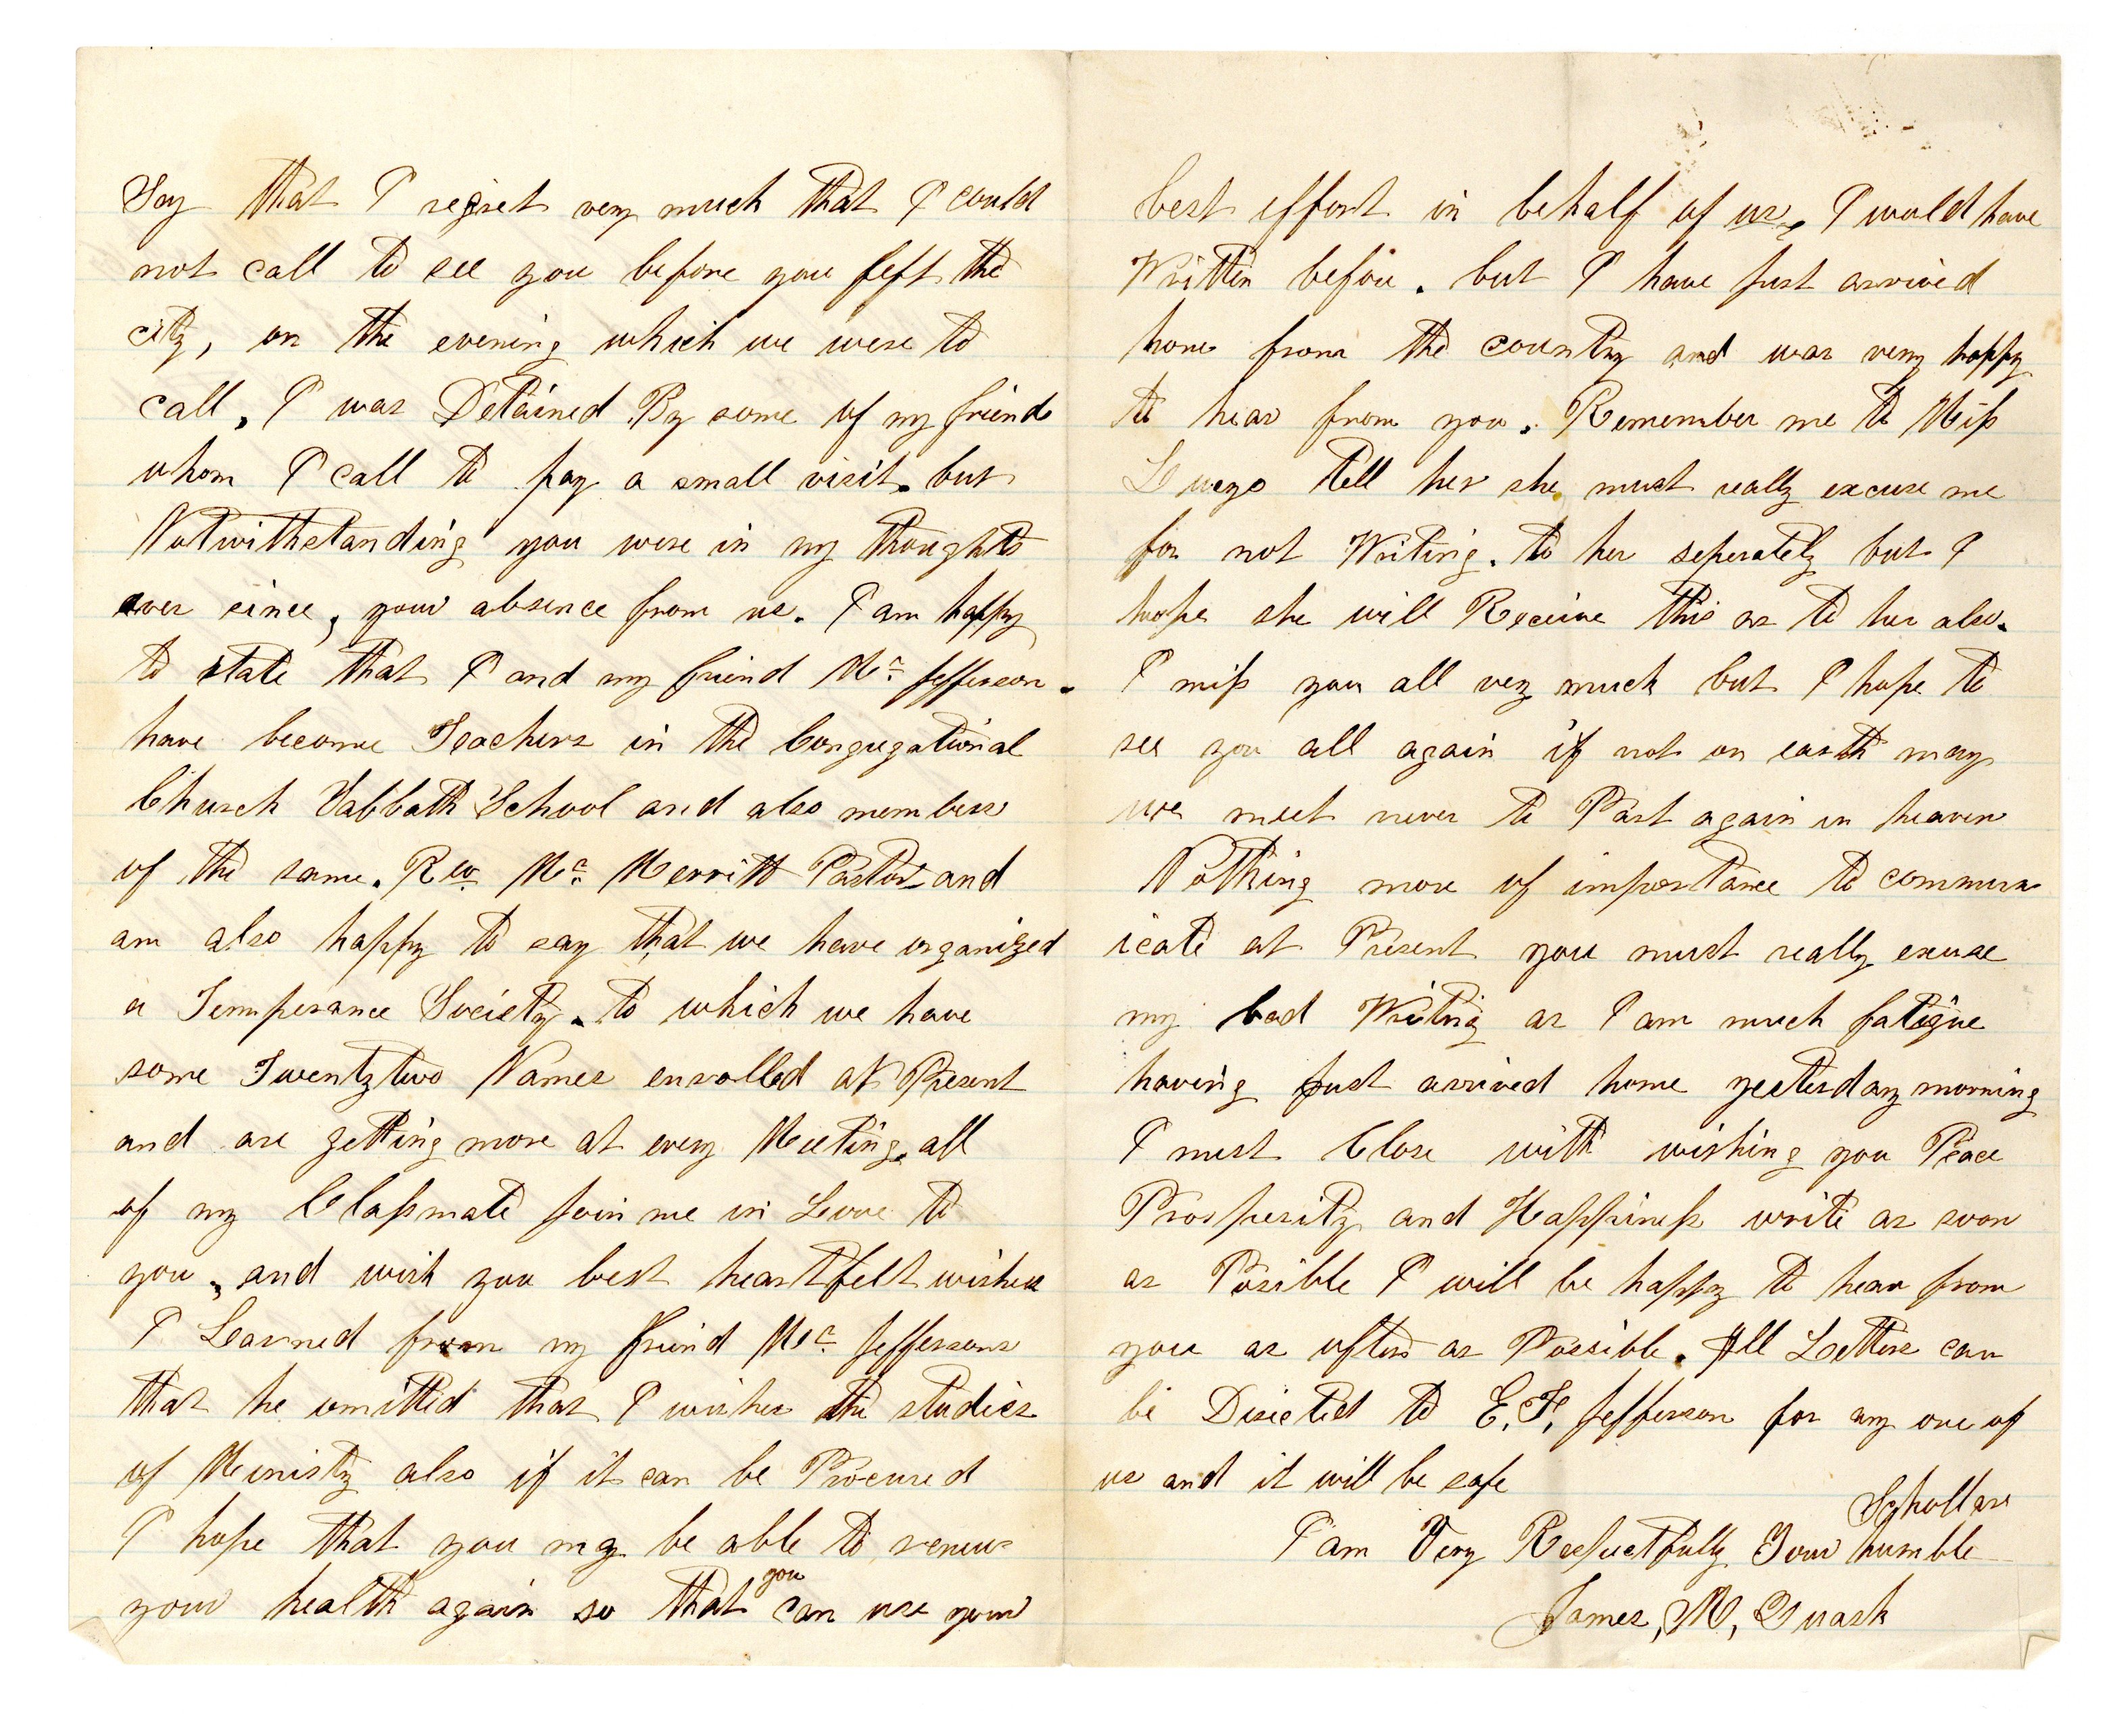 Say that I regret very much that I could
not call to see you before you left the
city, on the evening which we were to
call, I was Detained By some of my friends
whom I call to pay a small visit. but
Notwithstanding you were in my thoughts
ever since, your absence from us. I am happy
to state that I and my friend Mr. Jefferson.
have become Teachers in the Congregational
Church Sabbath School and also members
of the same. Rev. Mr. Merritt Pastor and
am also happy to say that we have organized
a Temperance Society. to which we have
some Twentytwo Names enrolled at Present
and are getting more at every Meeting. all
of my Classmate join me in Love to
you, and wish you best heartfelt wishes
I Learned from my friend Mr. Jefferson
that he omitted that I wishes the studies
of Ministy also if it can be Procured
I hope that you may be able to renew
your health again so that you can use your
best effort in behalf of us, I would have
Written before. but I have just arrived
home from the country and was very happy
to hear from you. Remember me to Miss
tell her she must really excuse me
for not Writing. to her seperately but I
hope she will Receive this as to her also.
I miss you all very much but I hope to
see you all again if not on earth may
we meet never to Part again in heaven
Nothing more of importance to commun
icate at Present you must really excuse
my bad Writing as I am much fatigue
having just arrived home yesterday morning
I must Close with wishing you Peace
Prosperity and Happiness write as soon
as Posible I will be happy to hear from
you as often as Possible. All Letters can
be Directed to E. F. Jefferson for any one of
us and it will be safe
I am Very Respectfully Your humble Schollar
James, M, Quash